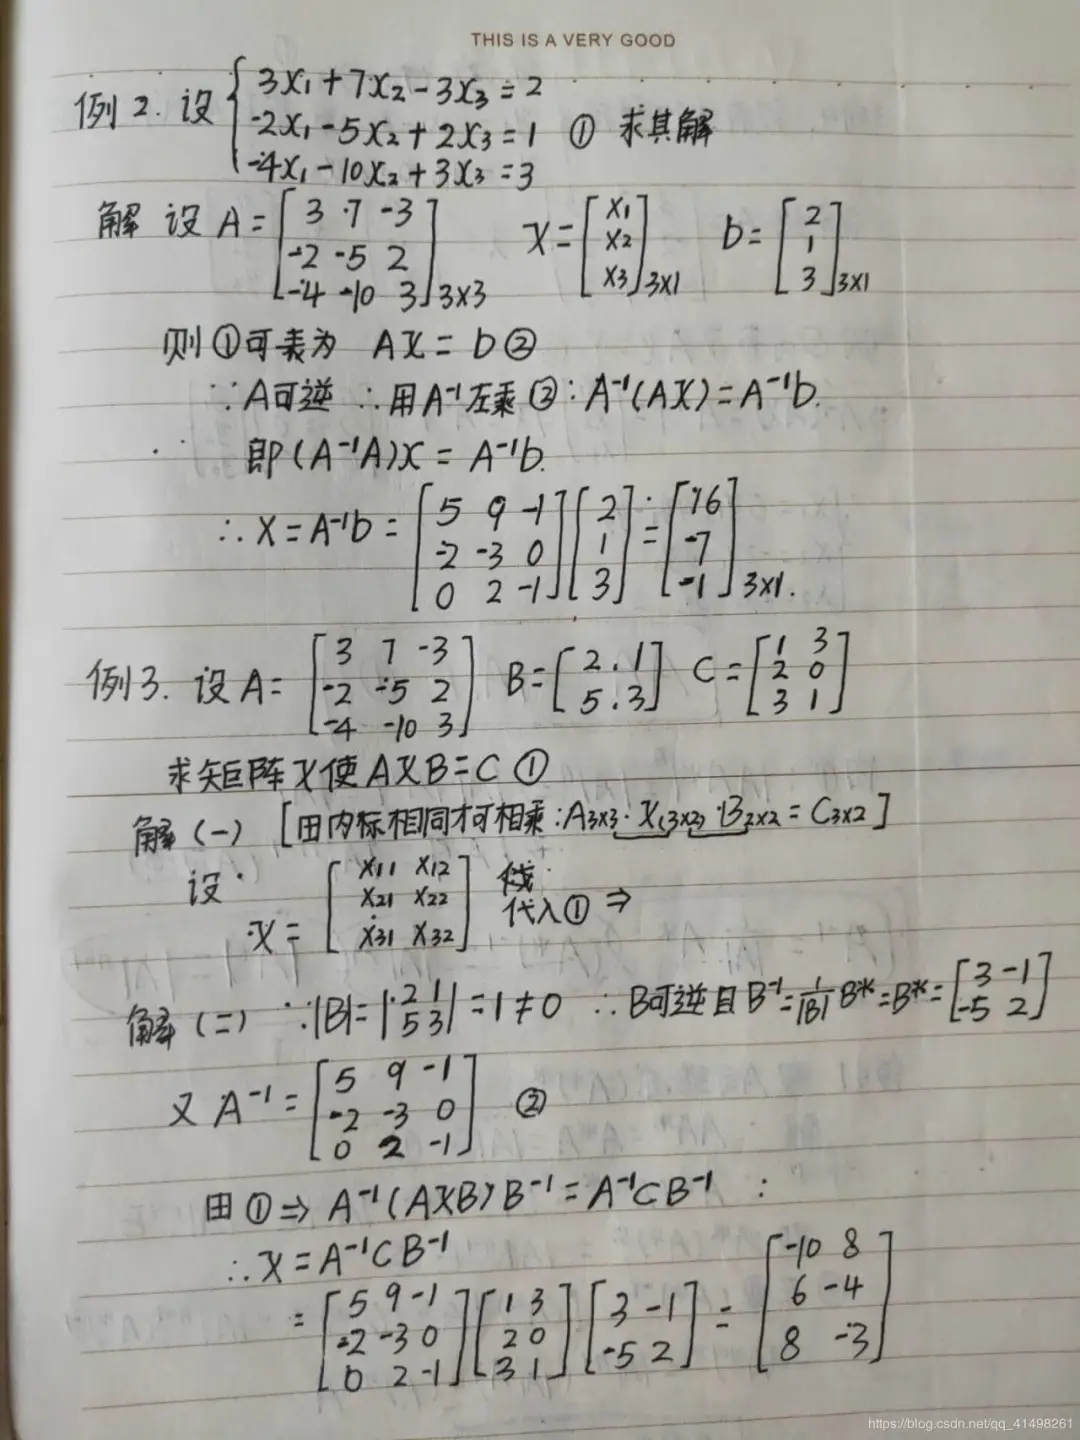 THIS IS A VERY GOOD
例2. 设 { 3x₁+7x₂-3x₃=2
-2x₁-5x₂+2x₃=1 ① 求其解
-4x₁-10x₂+3x₃=3
解 设 A=[3 7 -3; -2 -5 2; -4 -10 3]3×3 X=[x₁; x₂; x₃]3×1 b=[2; 1; 3]3×1
则①可表为 AX=b②
∵A可逆 ∴用A⁻¹左乘②:A⁻¹(AX)=A⁻¹b.
即(A⁻¹A)X=A⁻¹b.
∴X=A⁻¹b=[5 9 -1; -2 -3 0; 0 2 -1][2; 1; 3]=[16; -7; -1]3×1.
例3. 设A=[3 7 -3; -2 -5 2; -4 -10 3] B=[2 1; 5 3] C=[1 3; 2 0; 3 1]
求矩阵X使AXB=C①
解(一) [田内标相同才可相乘:A3×3·X(3×2)·B2×2=C3×2]
设
X=[x₁₁ x₁₂; x₂₁ x₂₂; x₃₁ x₃₂] 代入①⇒
解(二) ∵|B|=|2 1; 5 3|=1≠0 ∴B可逆且B⁻¹=1/|B| B*=B*=[3 -1; -5 2]
又 A⁻¹=[5 9 -1; -2 -3 0; 0 2 -1] ②
田①⇒A⁻¹(AXB)B⁻¹=A⁻¹CB⁻¹:
∴X=A⁻¹CB⁻¹
=[5 9 -1; -2 -3 0; 0 2 -1][1 3; 2 0; 3 1][3 -1; -5 2]=[-10 8; 6 -4; 8 -3]
https://blog.csdn.net/qq_41498261